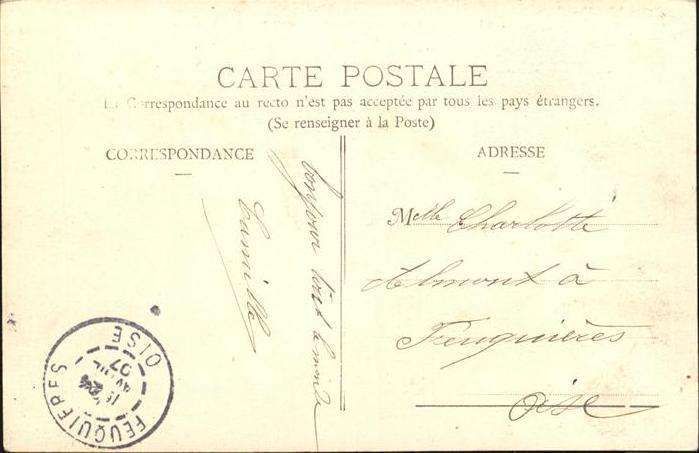 CARTE POSTALE
La Correspondance au recto n'est pas acceptée par tous les pays étrangers.
(Se renseigner à la Poste)
CORRESPONDANCE
bonjour tout le monde
Camille
ADRESSE
Melle Charlotte
Almont à
Feuquières
Oise
FEUQUIERES
AVRIL
07
OISE